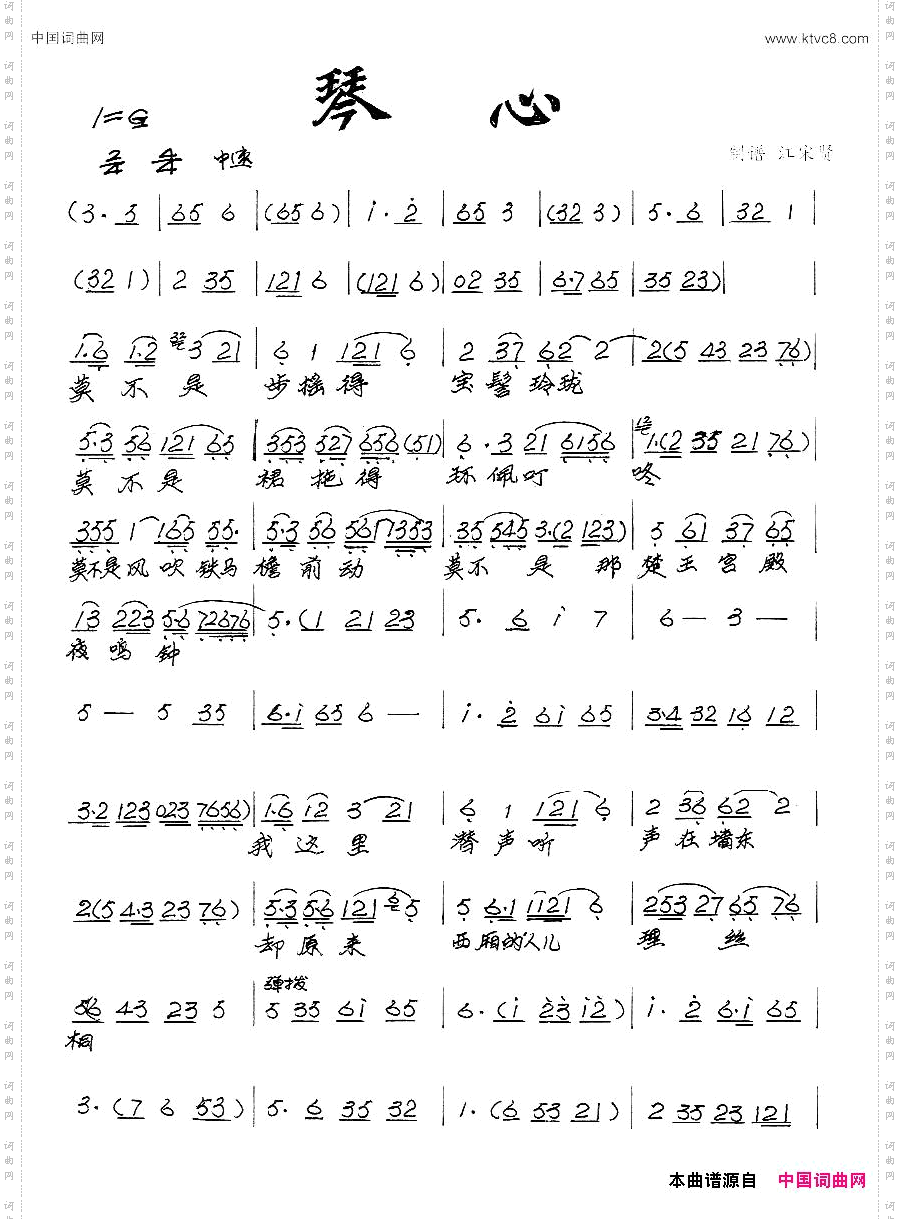 中国词曲网 www.ktvc8.com
琴 心
1=G
2/4 4/4 中速
制谱 江宋贤
(3· 5 | 65 6 | (65 6) | i· 2 | 65 3 | (32 3) | 5· 6 | 32 1 |
(32 1) | 2 35 | 121 6 | (121 6) | 02 35 | 6·7 65 | 35 23) |
1·6 1·2 3 21 | 6 1 121 6 | 2 37 62 2 | 2(5 43 23 76) |
莫 不 是 步摇得 宝髻玲珑
5·3 56 121 65 | 353 527 656 (51) | 6·3 21 6156 | 1·(2 35 21 76) |
莫 不 是 裙拖得 环佩叮 咚
355 1 165 55· | 5·3 56 561 7353 | 35 545 3·(2 123) | 5 61 37 65 |
莫不是风吹铁马 檐前动 莫不是那 楚王宫殿
13 223 5·6 72676 | 5·(1 21 23 | 5· 6 i 7 | 6 — 3 — |
夜鸣钟
5 — 5 35 | 6·i 65 6 — | i· 2 6i 65 | 3·4 32 16 12 |
3·2 123 023 7656) | 1·6 12 3 21 | 6 1 121 6 | 2 36 62 2 |
我这里 潜声听 声在墙东
2(5 4·3 23 76) | 5·3 5·6 121 65 | 5 6·1 1121 6 | 253 27 65 76 |
却原来 西厢的人儿 理 丝
弹拨
56 43 23 5 | 5 35 6i 65 | 6·(i 23 i2) | i· 2 6·i 65 |
桐
3·(7 6 53) | 5· 6 35 32 | 1·(6 53 21) | 2 35 23 121 |
本曲谱源自 中国词曲网